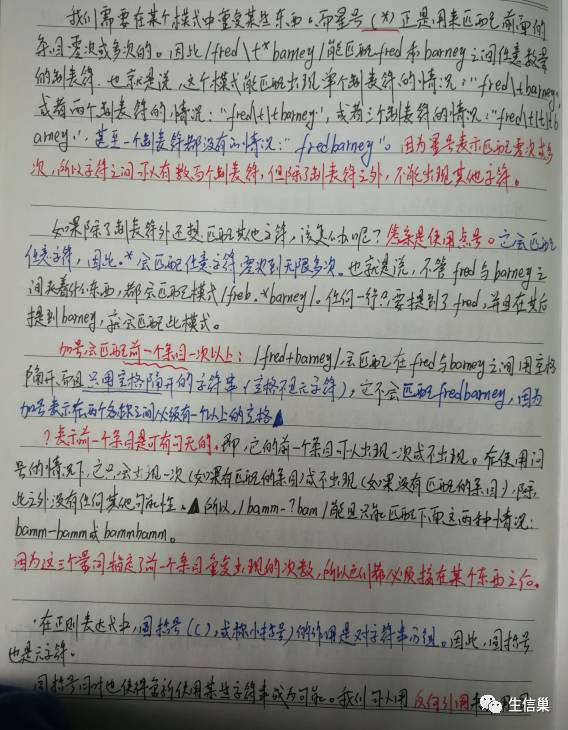 我们需要在某个模式中重复某些东西。而星号(*)正是用来匹配前面的
条目零次或多次的。因此/fred\t*barney/能匹配fred和barney之间任意数量
的制表符。也就是说,这个模式能匹配出现单个制表符的情况:"fred\tbarney"
或者两个制表符的情况:"fred\t\tbarney",或者三个制表符的情况:"fred\t\t\tb
arney",甚至一个制表符都没有的情况:"fredbarney"。因为星号表示匹配零次或多
次,所以字符之间可以有数百个制表符,但除了制表符之外,不能出现其他字符。
如果除了制表符外还想匹配其他字符,该怎么办呢?答案是使用点号。它会匹配
任意字符,因此.*会匹配任意字符零次到无限多次。也就是说,不管fred与barney之
间夹着什么东西,都会匹配模式/freb.*barney/。任何一行只要提到了fred,并且在其后
提到barney,就会匹配此模式。
加号会匹配前一个条目一次以上:/fred+barney/会匹配在fred与barney之间用空格
隔开、而且只用空格隔开的字符串(空格不是元字符),它不会匹配fredbarney,因为
加号表示在两个名称之间必须有一个以上的空格
?表示前一个条目是可有可无的。即,它的前一个条目可以出现一次或不出现。在使用问
号的情况下,它只会出现一次(如果有匹配的条目)或不出现(如果没有匹配的条目),除
此之外没有任何其他可能性。所以,/bamm-?bam/能且只能匹配下面这两种情况:
bamm-bamm或bammbamm。
因为这三个量词指定了前一个条目重复出现的次数,所以它们都必须接在某个东西之后。
·在正则表达式中,圆括号(( ),或称小括号)的作用是对字符串分组。因此,圆括号
也是元字符。
圆括号同时也使得重新使用某些字符串成为可能。我们可以用反向引用
生信巢